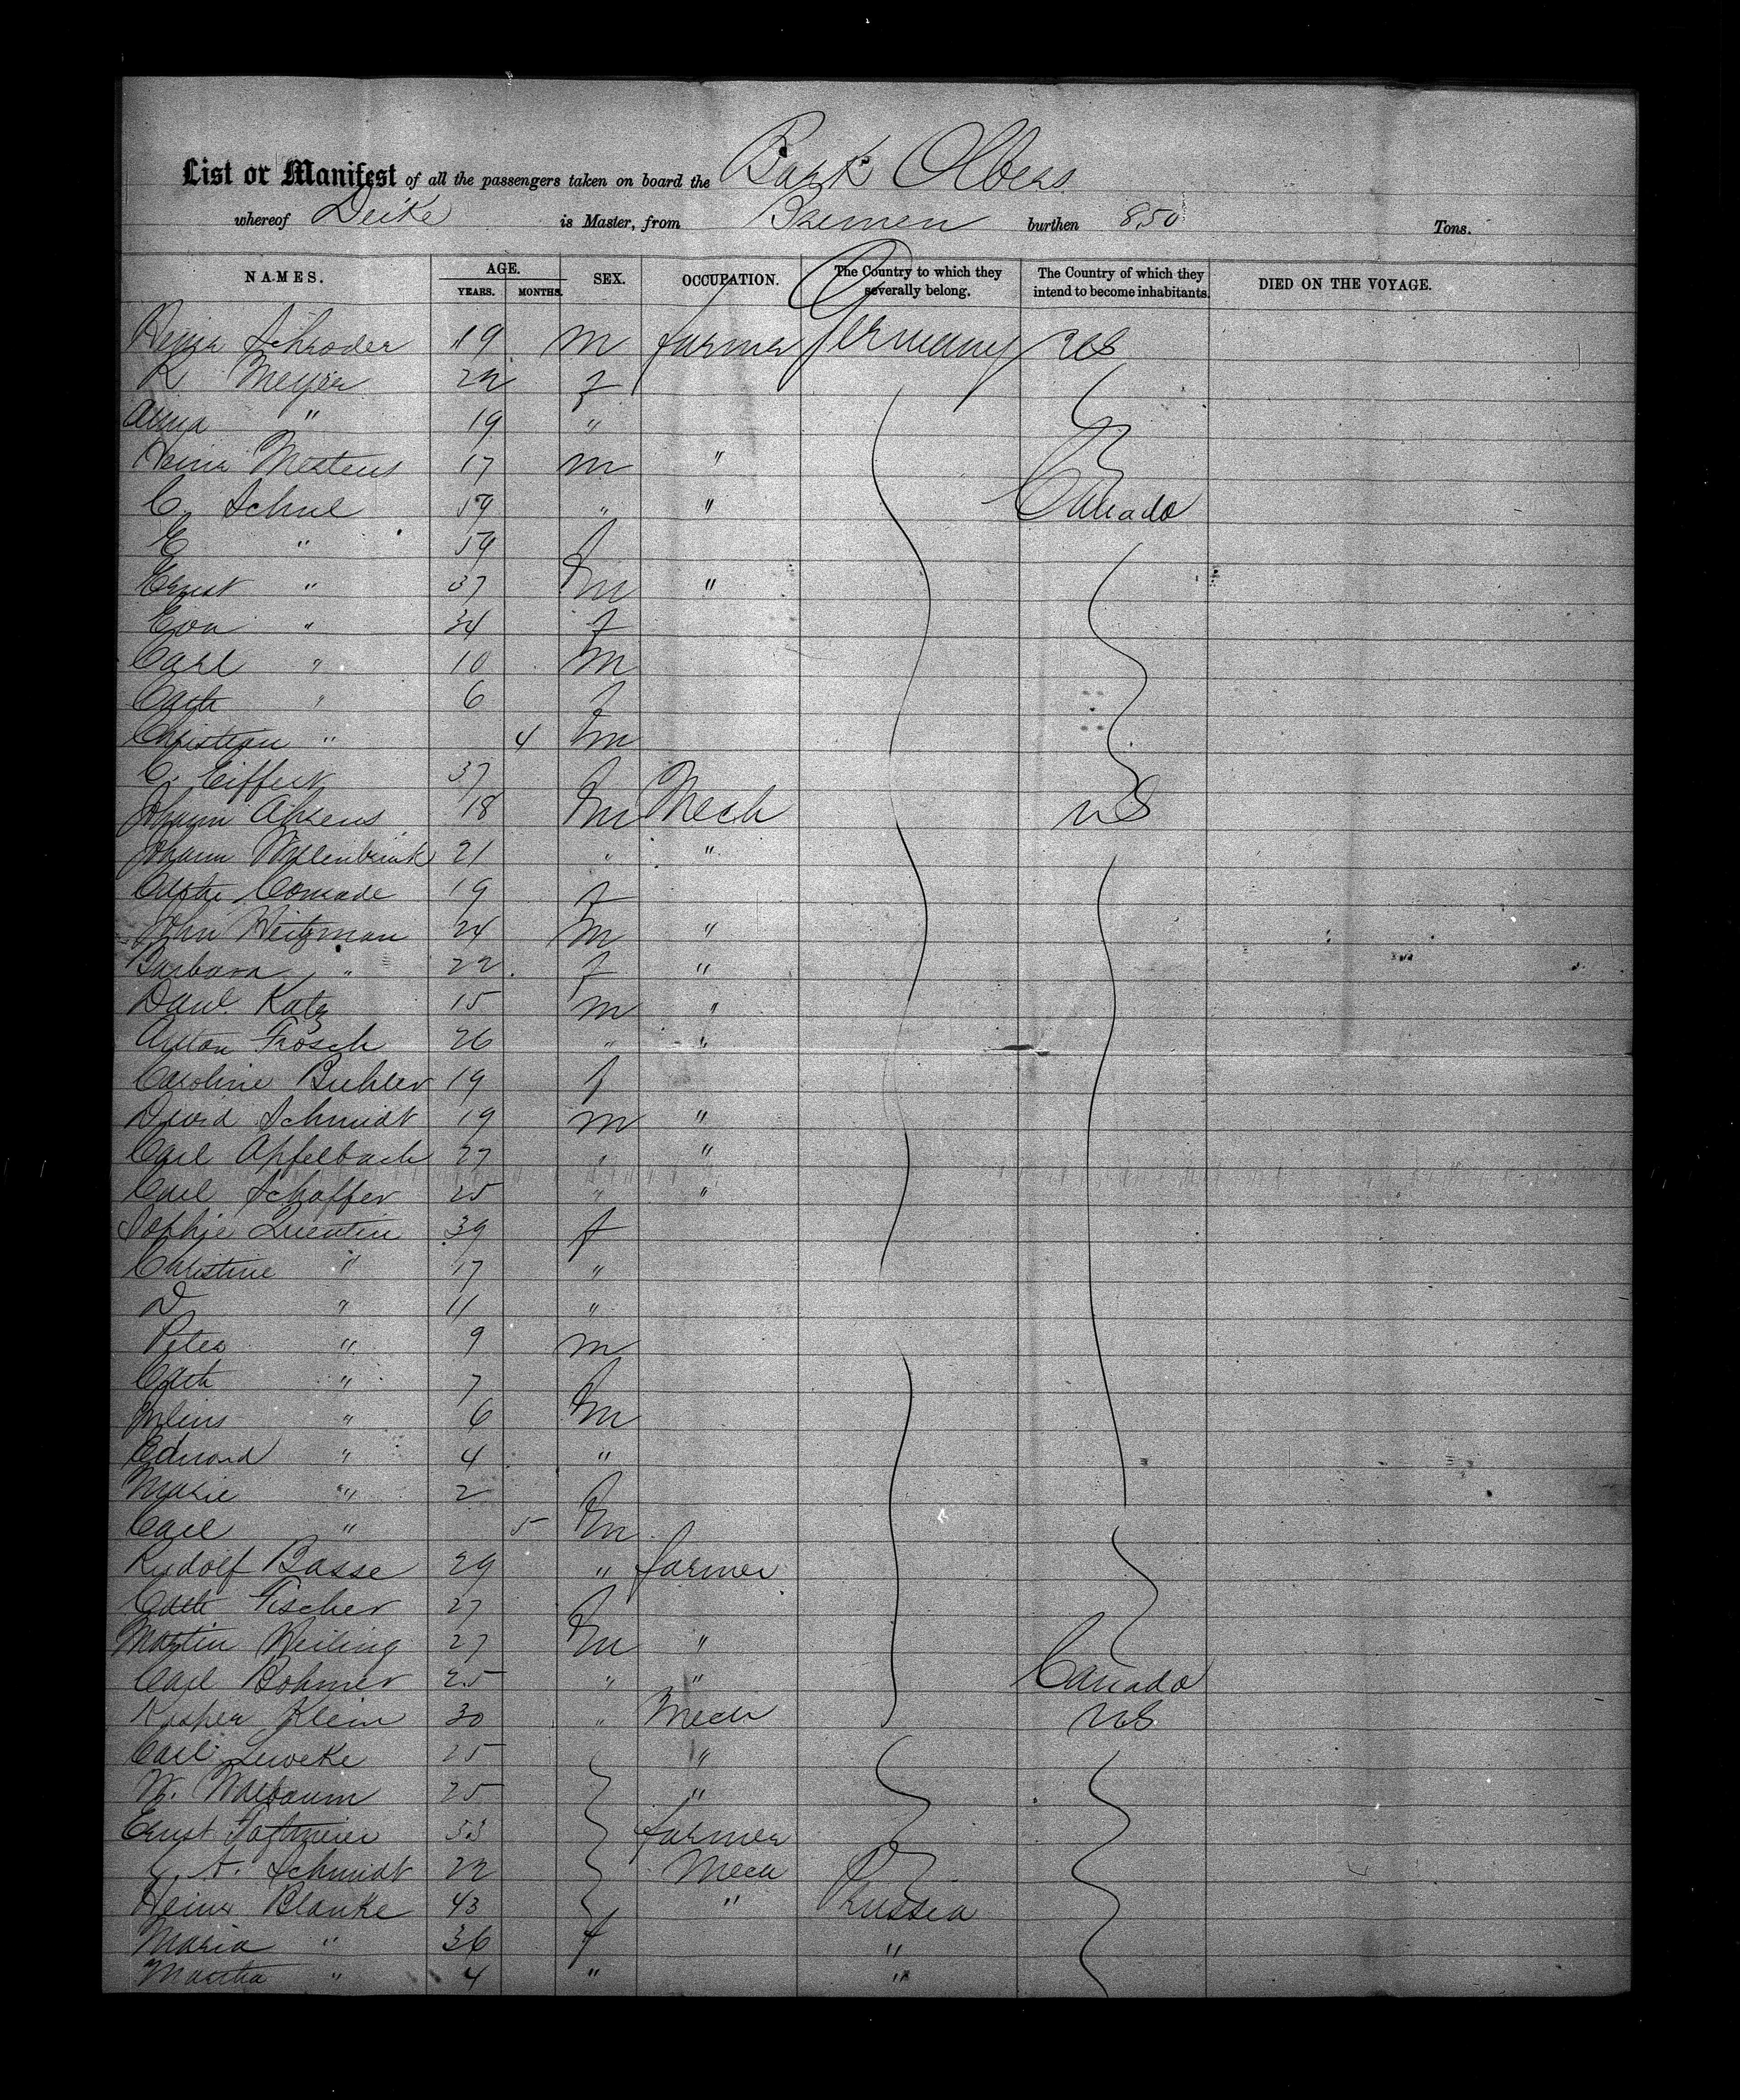 List or Manifest of all the passengers taken on board the Bark Olbers
whereof Deike is Master, from Bremen burthen 850 Tons.
NAMES. AGE. YEARS. MONTHS. SEX. OCCUPATION. The Country to which they severally belong. The Country of which they intend to become inhabitants. DIED ON THE VOYAGE.
Schroder 19 m farmer Germany US
K Meyer 22 f
Anna " 19 "
Heinr Mertens 17 m "
C. Schul 59 " " Canada
E " 59 f
Ernst " 37 m "
Eva " 34 f
Carl " 10 m
Cath " 6 f
Christian " 4 m
C. Eiffert 37
Johann Ahrens 18 m Mech US
Johann Wallenbrink 21 " "
Cathe Conrade 19 f
John Heitzman 24 m "
Barbara " 22 f "
Danl. Katz 15 m "
Anton Frosch 26 " "
Caroline Buhler 19 f
David Schmidt 19 m "
Carl Apfelbach 27 " "
Carl Schaffer 25 " "
Sophie Quentin 39 f
Christine " 17 "
D " 11 "
Peter " 9 m
Cath " 7
Julius " 6 m
Edward " 4 "
Marie " 2 f
Carl " 5 m
Rudolf Basse 29 " farmer
Cath Fischer 27 f
Martin Heiling 27 m "
Carl Bohmer 25 " " Canada
Kasper Klein 30 " Mech US
Carl Leweke 25 "
W. Walbaum 25 "
Ernst 33 farmer
A. Schmidt 22 Mech
Heinr Blanke 43 " Russia
Maria " 36 f "
Martha " 4 " "